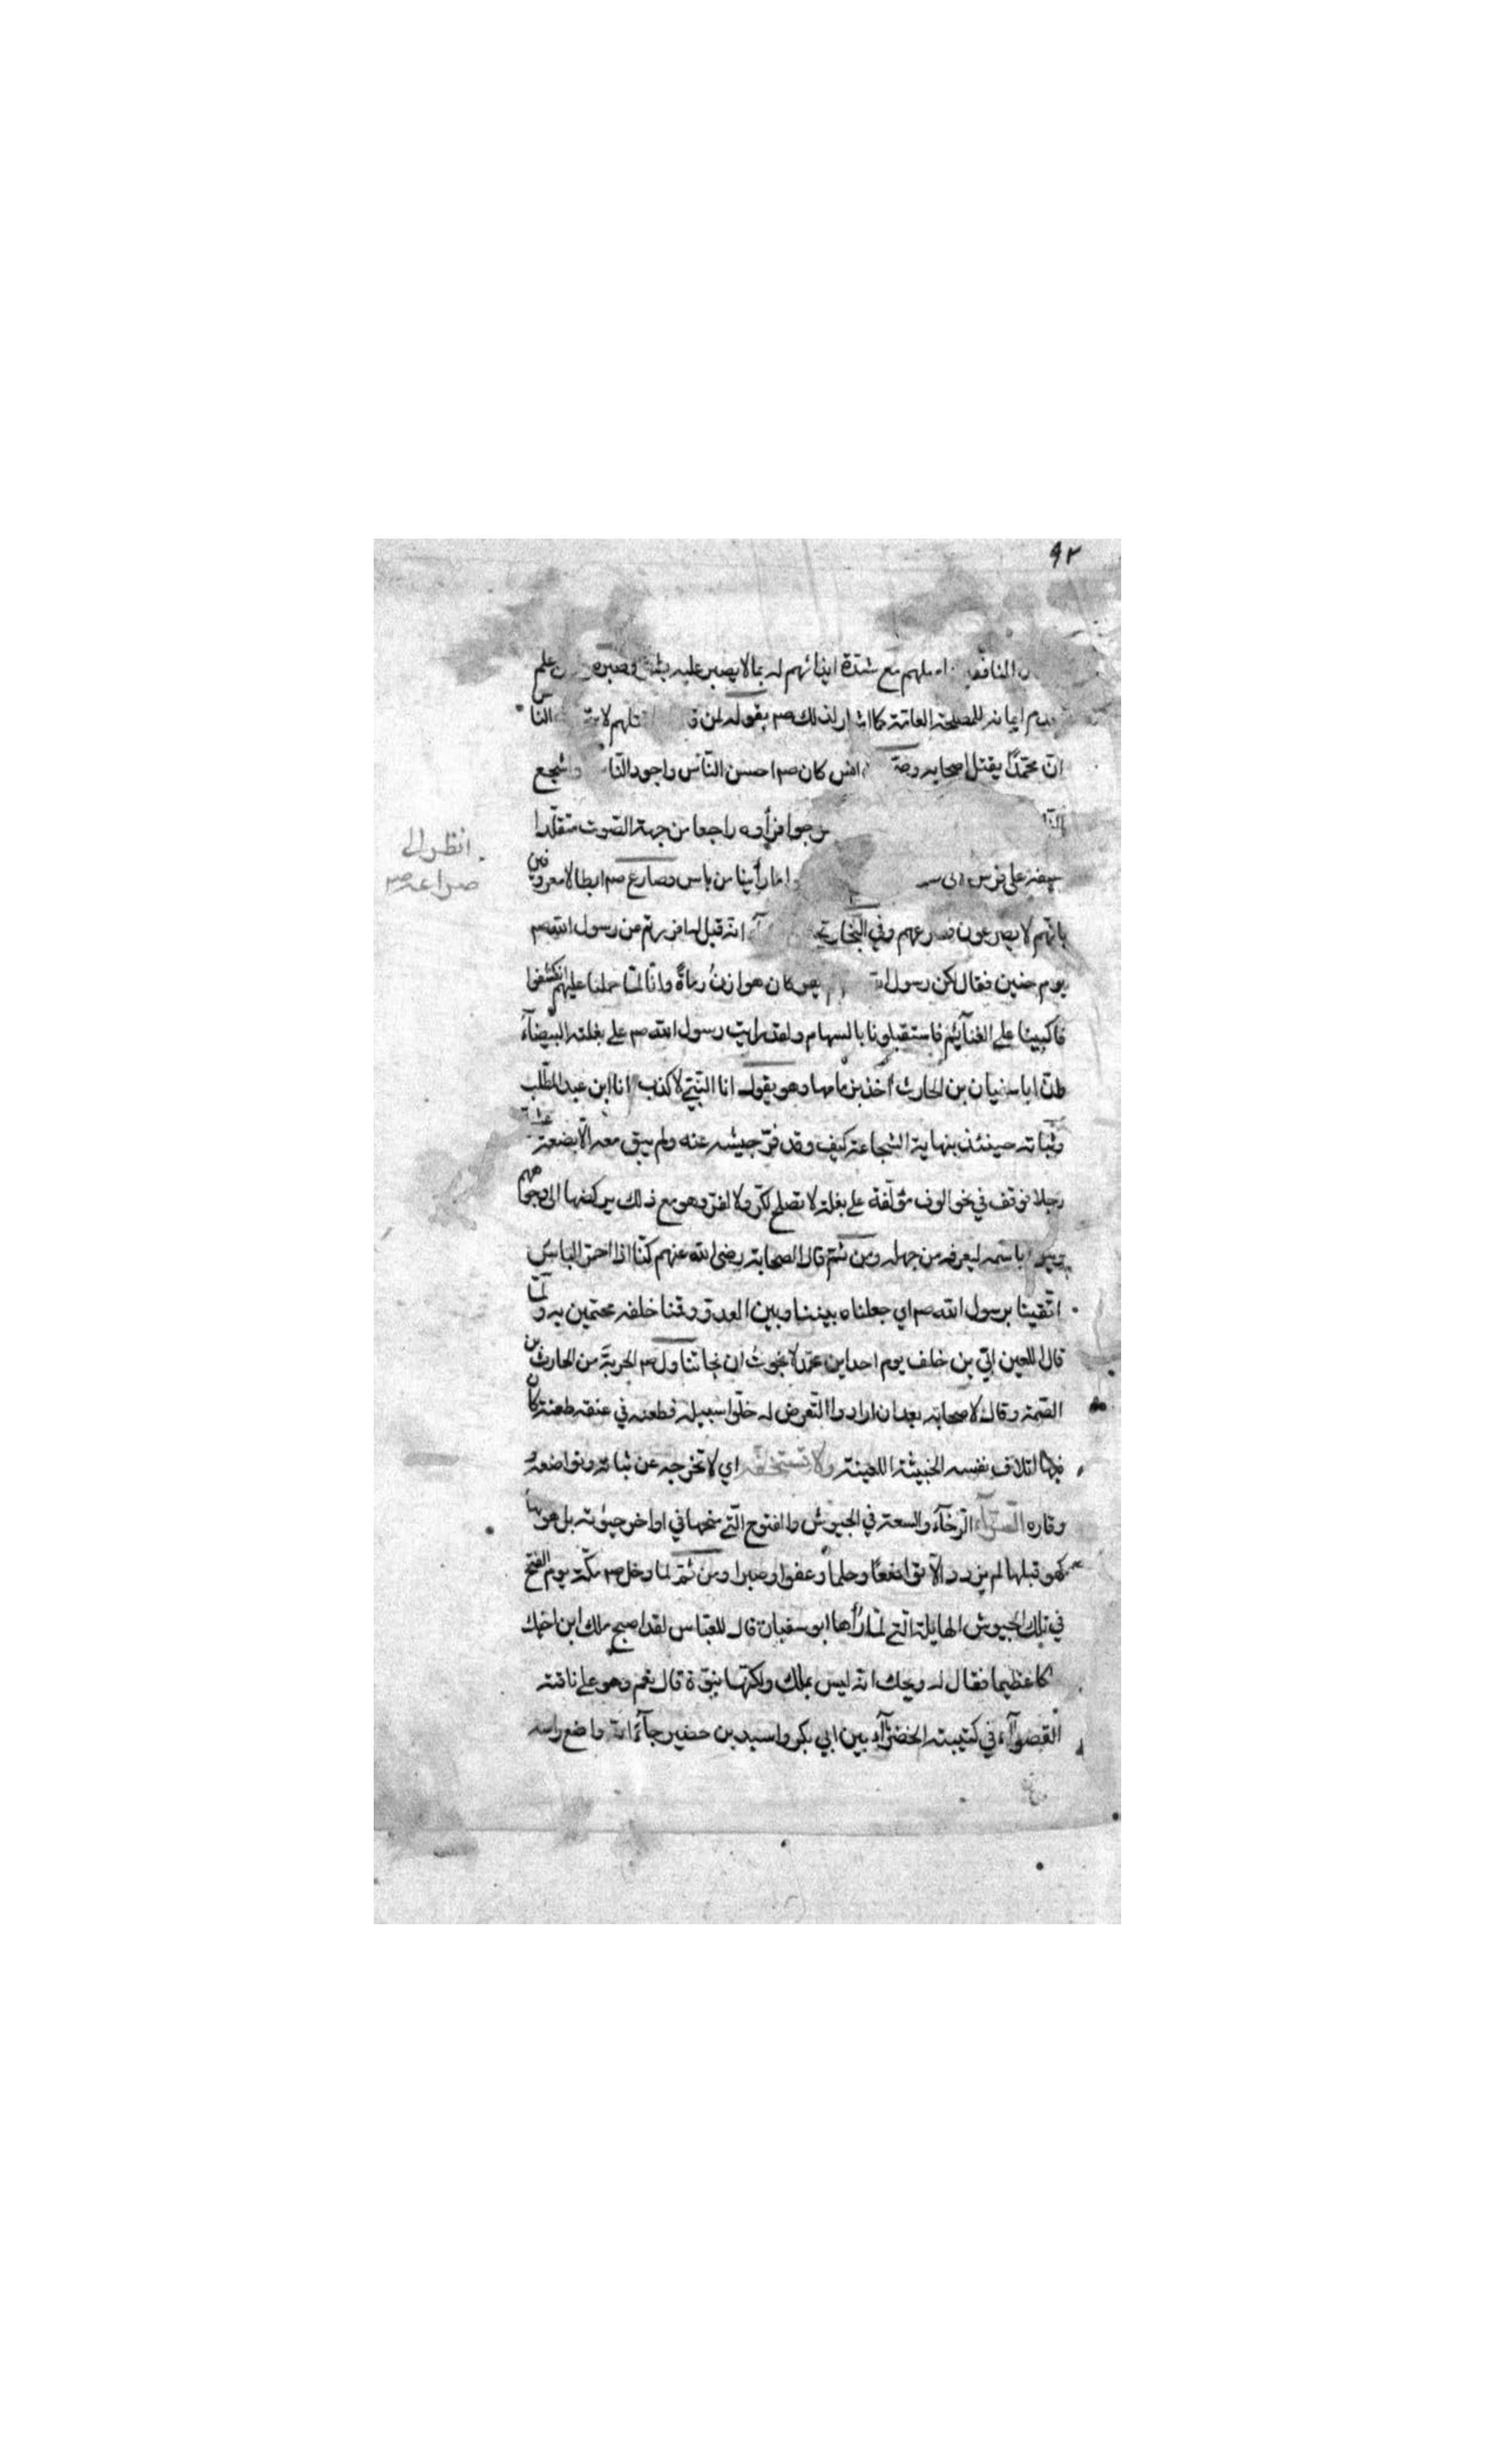 ٩٢
المنافقين املهم مع شدة ايذائهم له بما لا يصبر عليه بشر وصبره علم
ايمانه للمصلحة العامة كما اشار لذلك صم بقوله لمن قتلهم لا الناس
ان محمّدًا يقتل اصحابه انس كان صم احسن النّاس واجود النّا واشجع
النا خرجوا فرأوه راجعا من جهة الصّوت متقلّدا
سيفه على فرس ما رأينا من باس وصارع صم ابطالا معروفين
بانّهم لا يصرعون فصرعهم وفي البخاري انّه قيل له افررتم من رسول الله صم
يوم حنين فقال لكن رسول كان هوازنُ رماةً وانّا لمّا حملنا عليهم انكشفوا
فاكببنا على الغنآئم فاستقبلونا بالسهام ولقد رايت رسول الله صم على بغلته البيضآء
وانّ ابا سفيان بن الحارث آخذ بزمامها وهو يقول انا النّبيّ لا كذب انا ابن عبد المطّلب
وثباته حينئذ بنهاية الشجاعة كيف وقد فرّ جيشه عنه ولم يبق معه الّا بضعة عشر
رجلا فوقف في نحو الوف مؤلّفة على بغلة لا تصلح لكرّ ولا لفرّ وهو مع ذلك يركضها الى وجوههم
باسمه ليعرفه من جهله ومن ثمّ قال الصحابة رضى الله عنهم كنّا اذا احمرّ الباس
اتّقينا برسول الله صم اي جعلناه بيننا وبين العدوّ وقمنا خلفه محتمين به ولمّا
قال اللعين ابيّ بن خلف يوم احد اين محمّد لا نجوتُ ان نجا تناول صم الحربة من الحارث بن
الصّمة وقال لاصحابه بعد ان ارادوا التّعرض له خلّوا سبيله فطعنه في عنقه طعنة كان
فيها اتلاف نفسه الخبيثة اللعينة ولا تستخفّه اي لا تخرجه عن ثباته وتواضعه و
وقاره السّرّآء الرّخآء والسعة في الجيوش والفتوح الّتي منحها في اواخر حيوته بل هو
كهو قبلها لم يزدد الّا تواضعًا وحلما وعفوا وصبرا ومن ثمّ لما دخل صم مكّة يوم الفتح
في تلك الجيوش الهايلة الّتي لمّا رأها ابو سفيان قال للعبّاس لقد اصبح ملك ابن اخيك
ملكا عظيما فقال له ويحك انّه ليس بملك ولكنّها نبوّة قال نعم وهو على ناقته
القصوآء في كتيبته الخضرآء بين ابي بكر واسيد بن حضير واضع راسه
انظر الى
صراعه صم